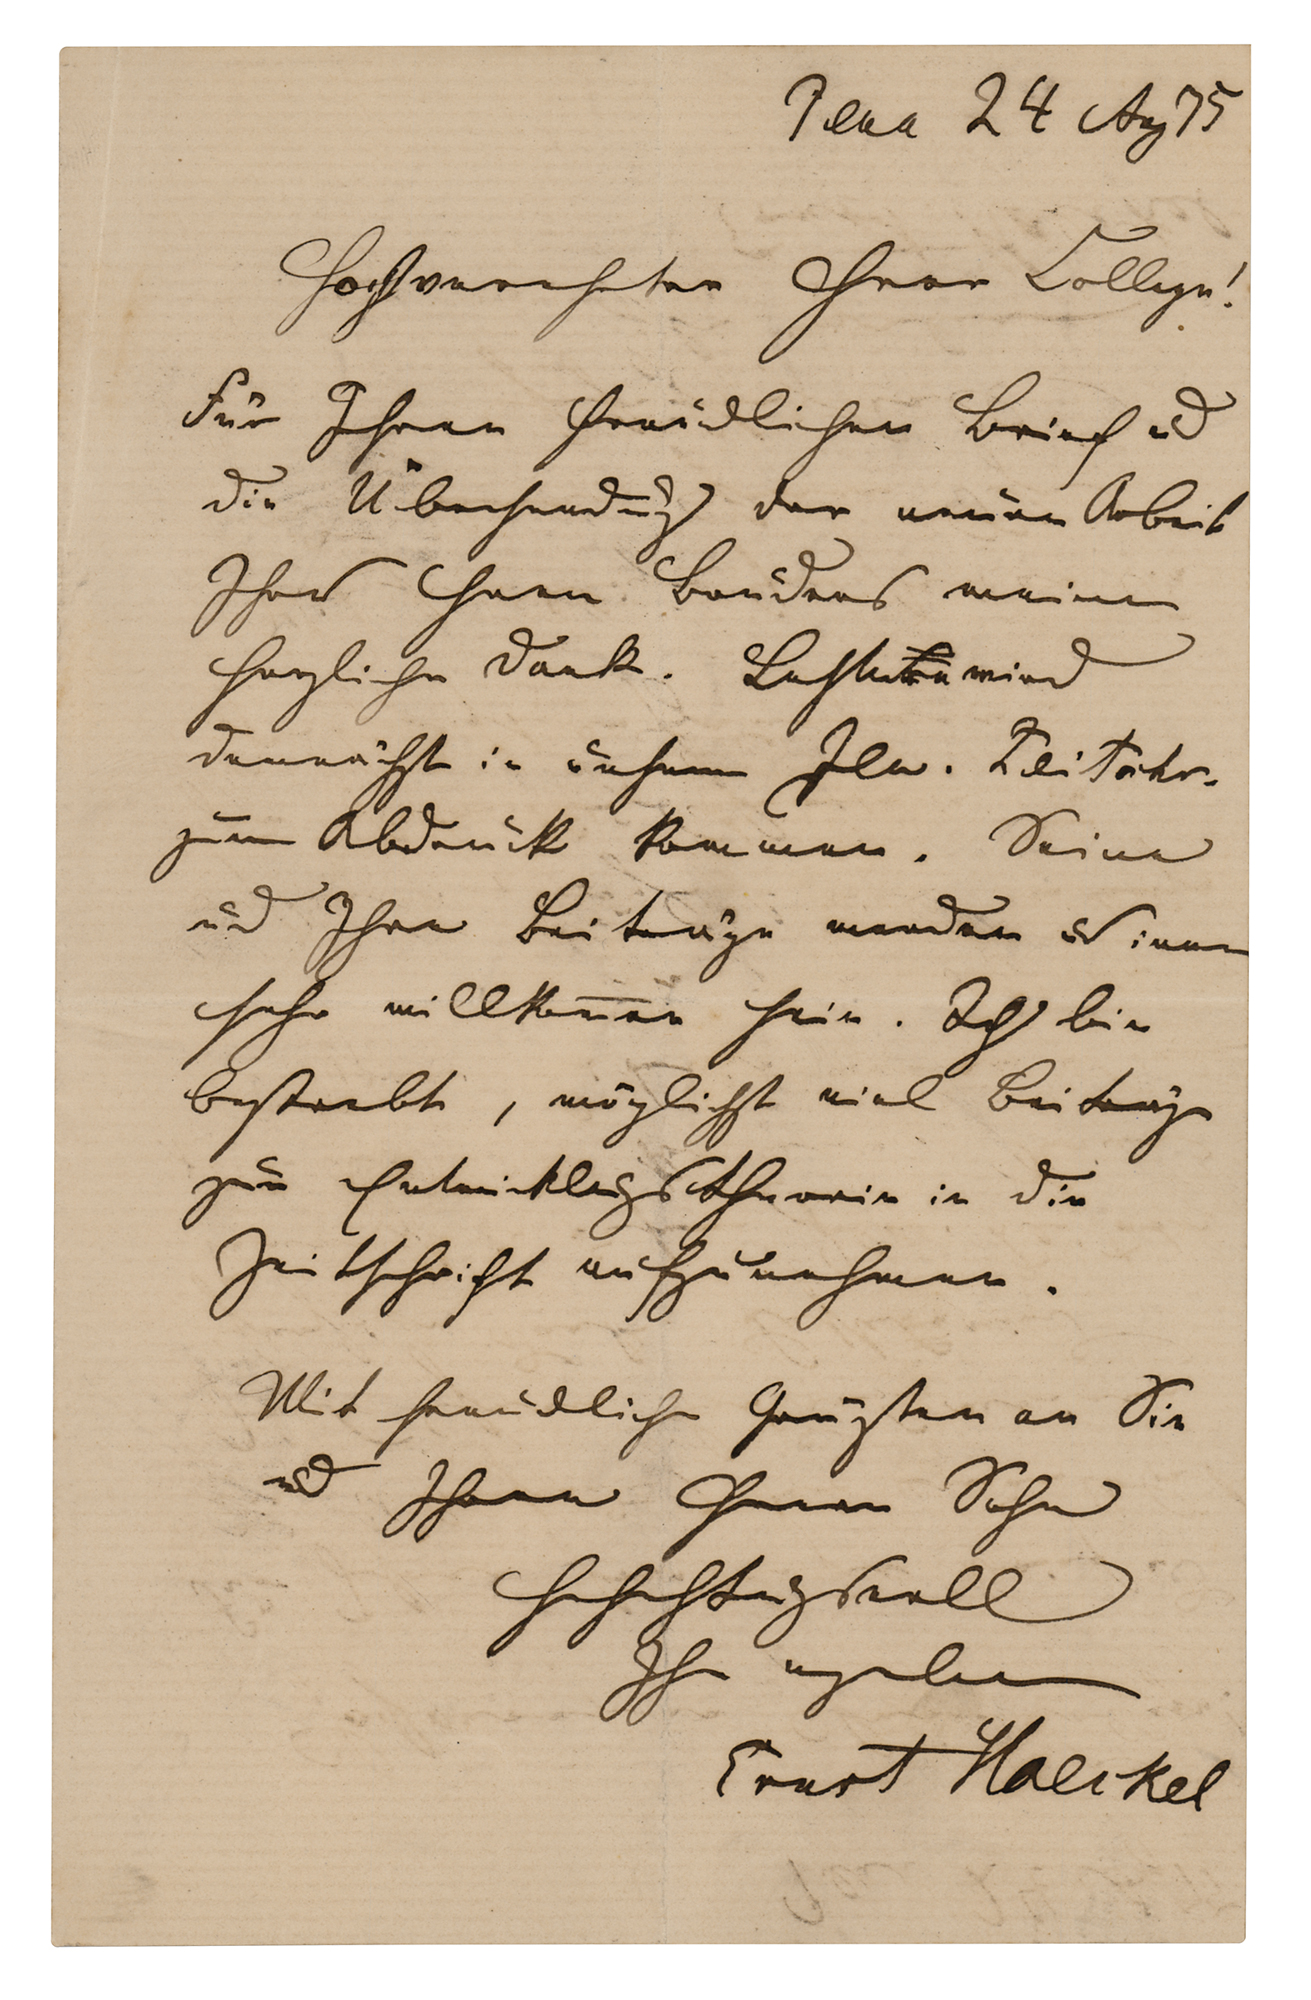 Jena 24 Aug 75
Hochverehrter Herr College!
Für Ihren freudlichen Brief ud
die Übersendug der neuen Arbeit
Ihres Herrn Bruders meinen
herzlichen Dank. Letztere wird
demnächst in unserem Jen. Zeitschr.
zum Abdruck kommen. Seine
und Ihre Beiträge werden uns immer
sehr willkom̅en sein. Ich bin
bestrebt, möglichst viel Beiträge
zur Entwicklugstheorie in die
Zeitschrift aufzunehmen.
Mit freudlichen Grüßen an Sie
ud Ihren Herrn Sohn
hochachtugsvoll
Ihr ergebener
Ernst Haeckel